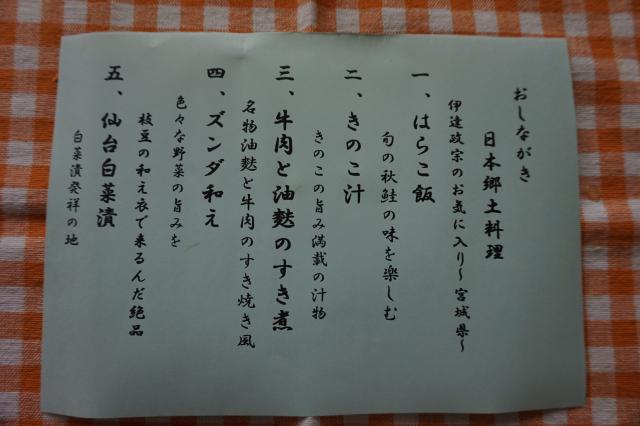 おしながき
日本郷土料理
伊達政宗のお気に入り～宮城県～
一、はらこ飯
旬の秋鮭の味を楽しむ
二、きのこ汁
きのこの旨み満載の汁物
三、牛肉と油麩のすき煮
名物油麩と牛肉のすき焼き風
四、ズンダ和え
色々な野菜の旨みを
枝豆の和え衣で来るんだ絶品
五、仙台白菜漬
白菜漬発祥の地